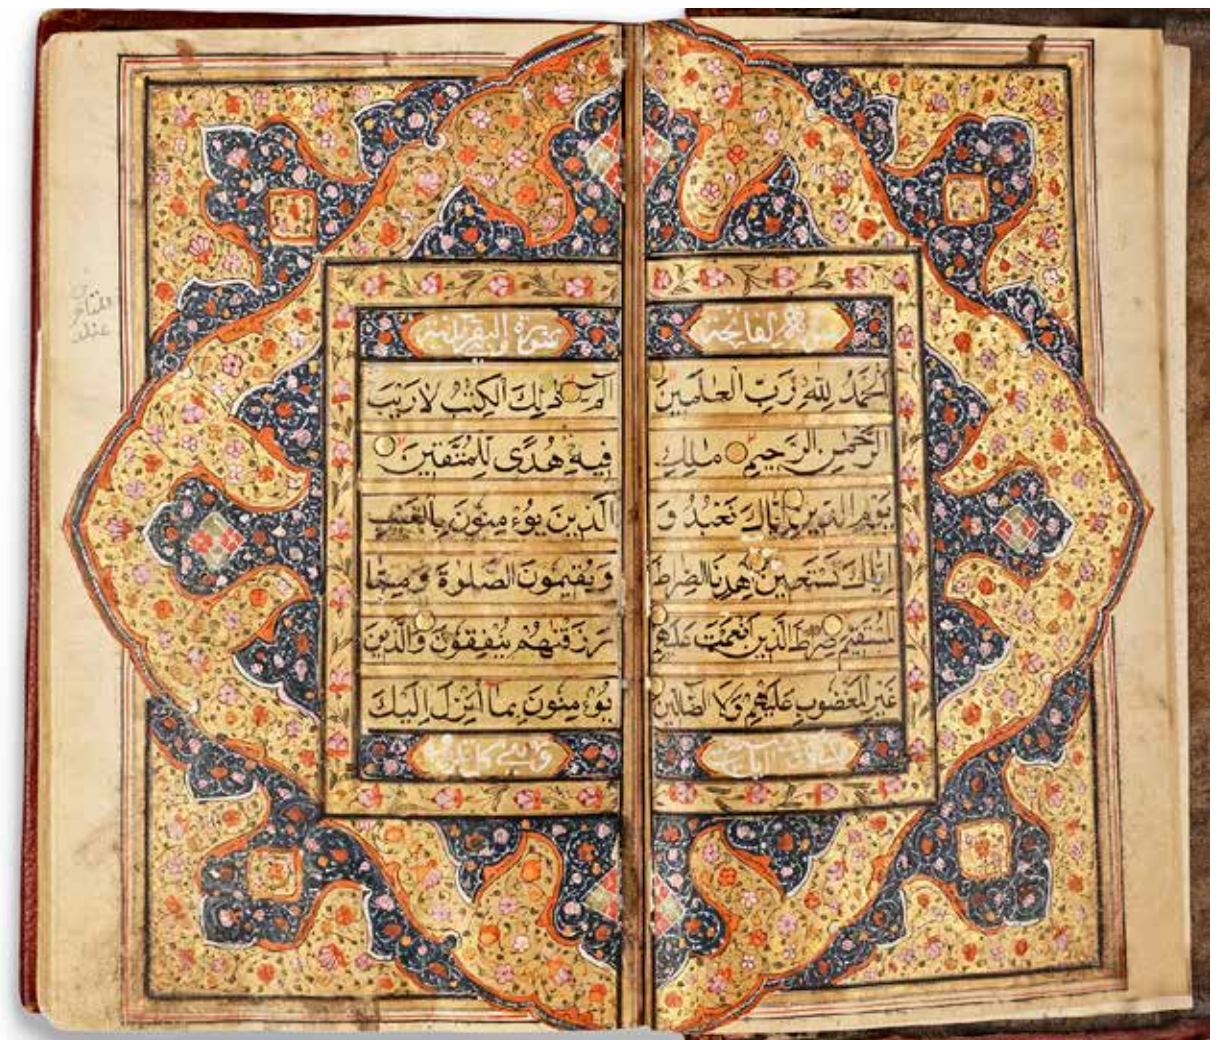 سورة الفاتحة
اَلْحَمْدُ لِلّٰهِ رَبِّ الْعٰلَمِيْنَ
الرَّحْمٰنِ الرَّحِيْمِ مٰلِكِ
يَوْمِ الدِّيْنِ اِيَّاكَ نَعْبُدُ وَ
اِيَّاكَ نَسْتَعِيْنُ اِهْدِنَا الصِّرَاطَ
الْمُسْتَقِيْمَ صِرَاطَ الَّذِيْنَ اَنْعَمْتَ عَلَيْهِمْ
غَيْرِ الْمَغْضُوْبِ عَلَيْهِمْ وَلَا الضَّآلِّيْنَ
سورة البقرة
الٓمٓ ذٰلِكَ الْكِتٰبُ لَا رَيْبَ
فِيْهِ هُدًى لِّلْمُتَّقِيْنَ
الَّذِيْنَ يُؤْمِنُوْنَ بِالْغَيْبِ
وَيُقِيْمُوْنَ الصَّلٰوةَ وَمِمَّا
رَزَقْنٰهُمْ يُنْفِقُوْنَ وَالَّذِيْنَ
يُؤْمِنُوْنَ بِمَآ اُنْزِلَ اِلَيْكَ